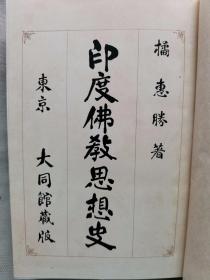 橘惠勝著
印度佛教思想史
東京 大同館藏版